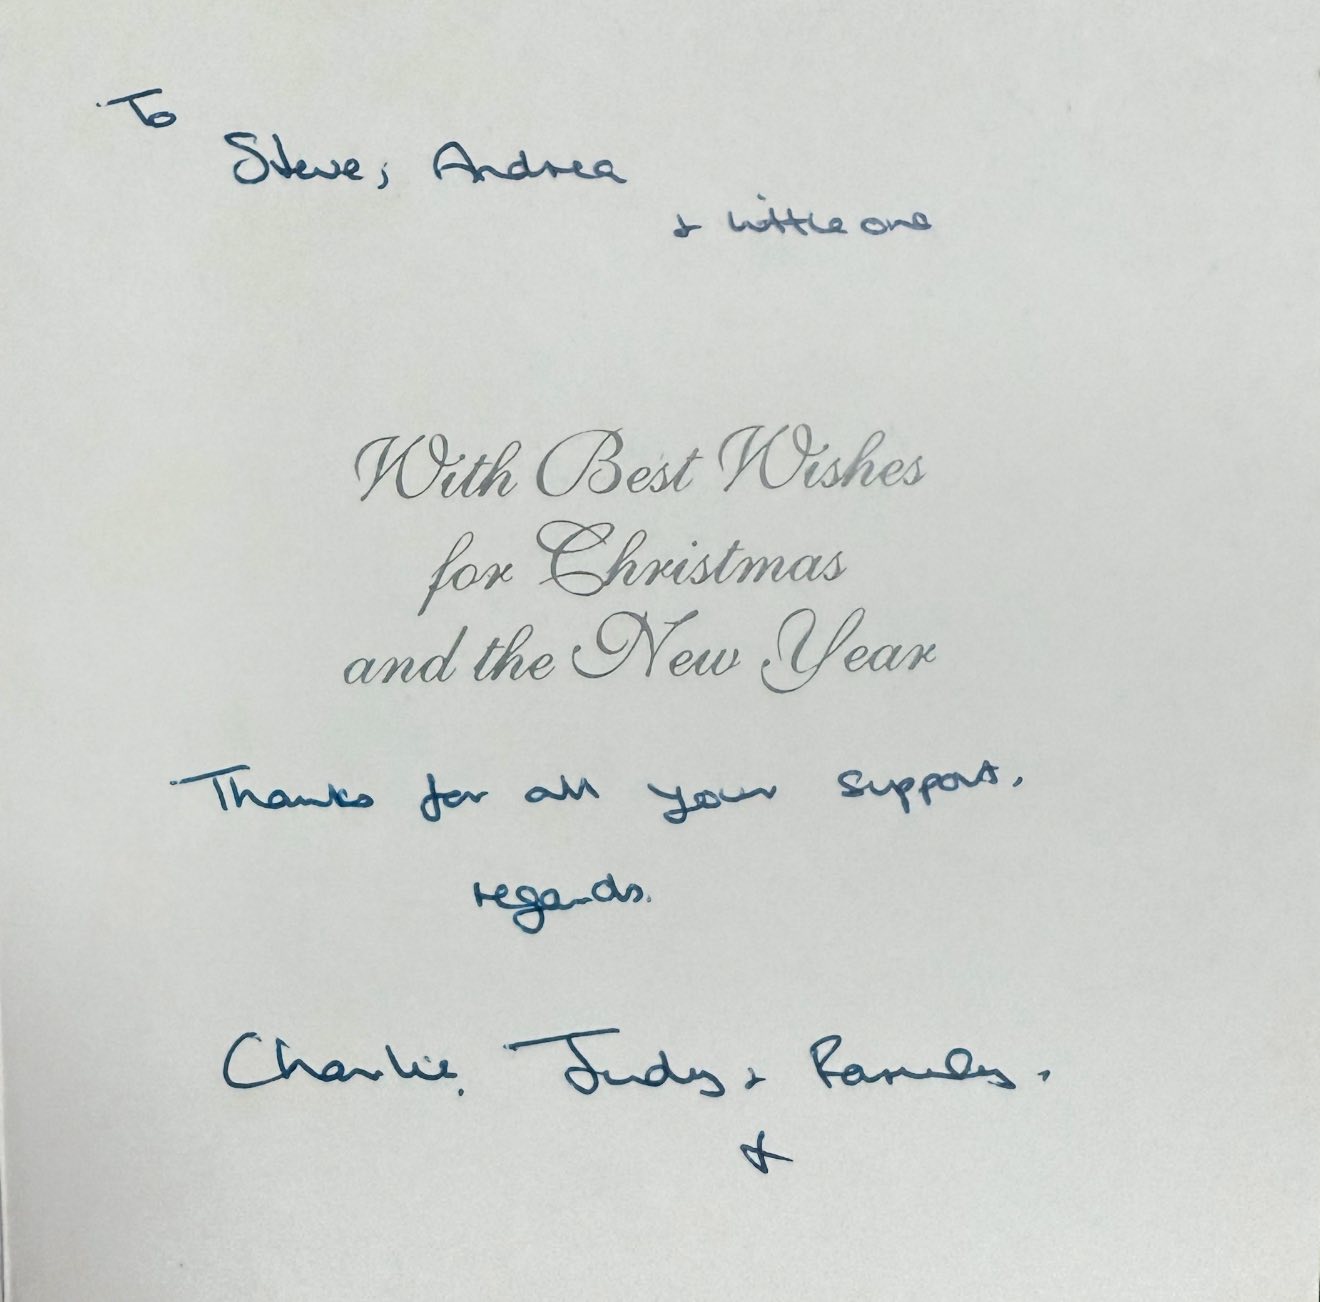 To
Steve, Andrea
+ little one
With Best Wishes
for Christmas
and the New Year
Thanks for all your support.
regards.
Charlie, Judy + Family.
x